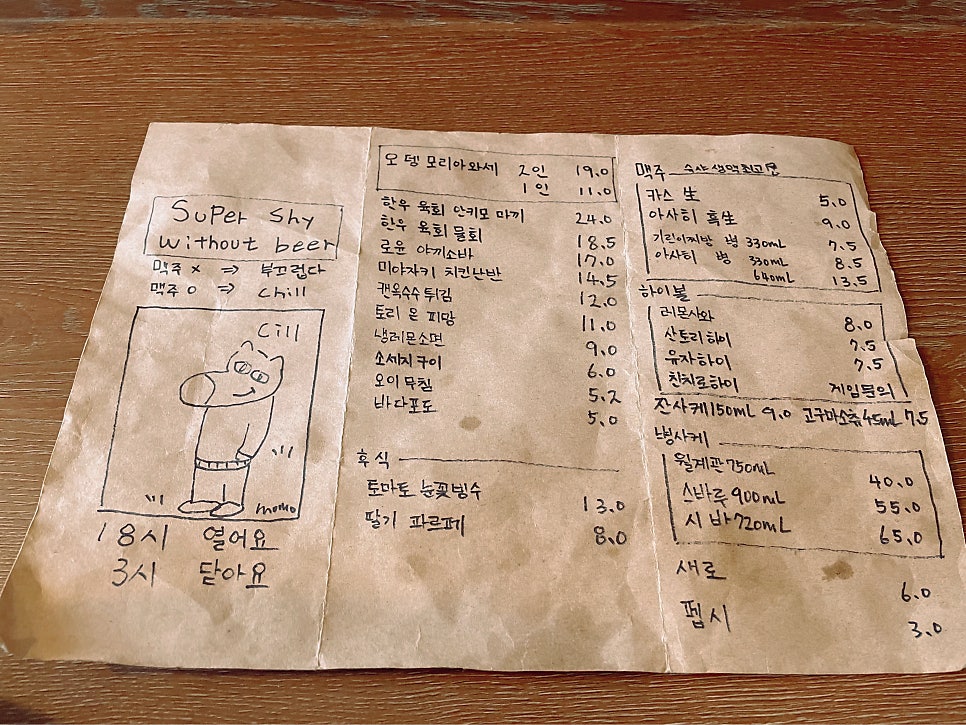 Super Shy
without beer
맥주 x ⇒ 부끄럽다
맥주 o ⇒ chill
Cill
momo
18시 열어요
3시 닫아요
오뎅 모리아와세 2인 19.0
1인 11.0
한우 육회 안키모 마끼 24.0
한우 육회 물회 18.5
로윤 야끼소바 17.0
미야자키 치킨난반 14.5
캔옥수수 튀김 12.0
토리 온 피망 11.0
냉레몬소면 9.0
소세지구이 6.0
오이무침 5.2
바다포도 5.0
후식
토마토 눈꽃빙수 13.0
딸기 파르페 8.0
맥주 수사 생맥 최고
카스 生 5.0
아사히 흑生 9.0
기린이치방 병 330mL 7.5
아사히 병 330mL 8.5
640mL 13.5
하이볼
레몬사와 8.0
산토리하이 7.5
유자하이 7.5
친치로하이 게임문의
잔사케150mL 9.0 고구마소츄45mL 7.5
병사케
월계관 750mL 40.0
스바루 900mL 55.0
시바 720mL 65.0
새로 6.0
펩시 3.0